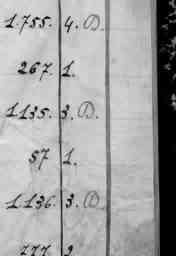 1.755. 4. D.
267. 1.
1135. 3. D.
57 1.
1136. 3. D.
777 2